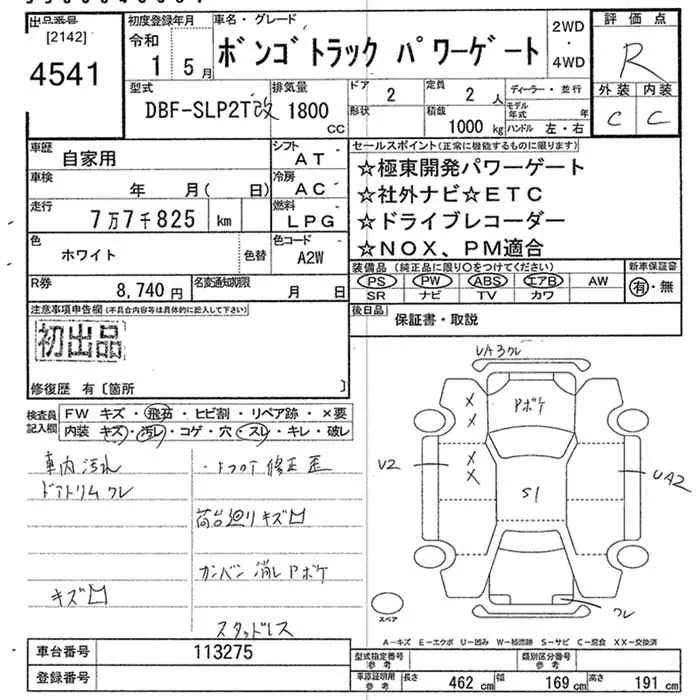 出品番号
[2142]
4541
初度登録年月
令和
1 5月
車名・グレード
ボンゴトラック パワーゲート
2WD
・
4WD
評価点
R
外装 内装
C C
型式
DBF-SLP2T改
排気量
1800
CC
ドア
2
定員
2人
ディーラー・並行
形状
積載
1000kg
モデル年式 年
ハンドル 左・右
車歴
自家用
シフト
AT
車検
年 月( 日)
冷房
AC
走行
7万7千825 km
燃料
LPG
色
ホワイト
色替
色コード
A2W
R券
8,740円
名変通知期限
月 日
セールスポイント(正常に機能するものに限ります)
☆極東開発パワーゲート
☆社外ナビ☆ETC
☆ドライブレコーダー
☆NOX、PM適合
装備品(純正品に限り○をつけてください)
PS PW ABS エアB AW
SR ナビ TV カワ
新車保証書
有・無
後日品
保証書・取説
注意事項申告欄(不具合内容等は具体的に記入して下さい)
初出品
修復歴 有〔箇所 〕
検査員記入欄
FW キズ・飛石・ヒビ割・リペア跡・×要
内装 キズ・汚レ・コゲ・穴・スレ・キレ・破レ
車内汚れ
ドアトリムクレ
キズ凹
修正歪
荷台廻りキズ凹
カンバン消しPボケ
スタッドレス
UA3クレ
Pボケ
U2
S1
UA2
クレ
スペア
A-キズ E-エクボ U-凹み W-補修跡 S-サビ C-腐食 XX-交換済
車台番号
113275
登録番号
型式指定番号
参考
類別区分番号
参考
車庫証明用
参考
長さ 462cm 幅 169cm 高さ 191cm